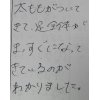 太ももがついて
きて、足全体が
まっすぐになって
きているのが
わかりました。